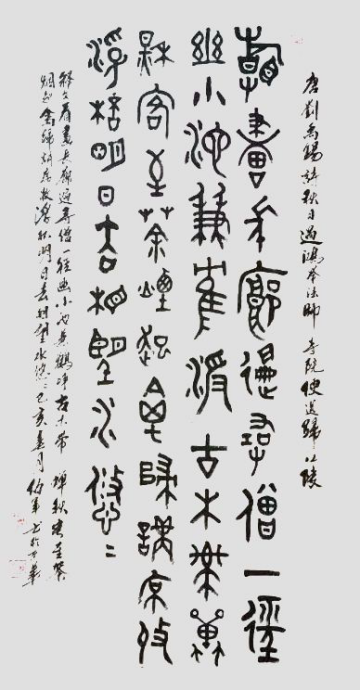 唐劉禹錫詩秋日過鴻舉法師寺院便送歸江陵
看畫長廊遍尋僧一徑
幽小池兼鶴淨古木帶蟬
秋客至茶煙起禽歸講席收
浮桮明日去相望水悠〻
釋文看畫長廊遍尋僧一徑幽小池兼鶴淨古木帶蟬秋客至茶
煙起禽歸講席收浮杯明日去相望水悠〻己亥 月 書於